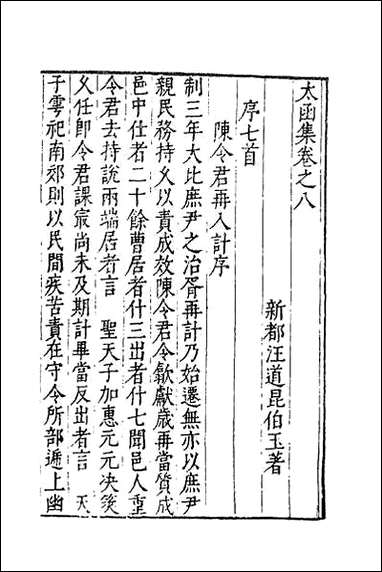 太函集卷之八
新都汪道昆伯玉著
序七首
陳令君再入計序
制三年大比庶尹之治胥再計乃始遷無亦以庶尹
親民務持久以責成效陳令君令歙獻歲再當質成
邑中仕者二十餘曹居者什三出者什七聞邑人重
令君去持說兩端居者言 聖天子加惠元元决筴
久任即令君課最尚未及期計畢當反出者言 天
子雩祀南郊則以民間疾苦責在守令所部遞上幽